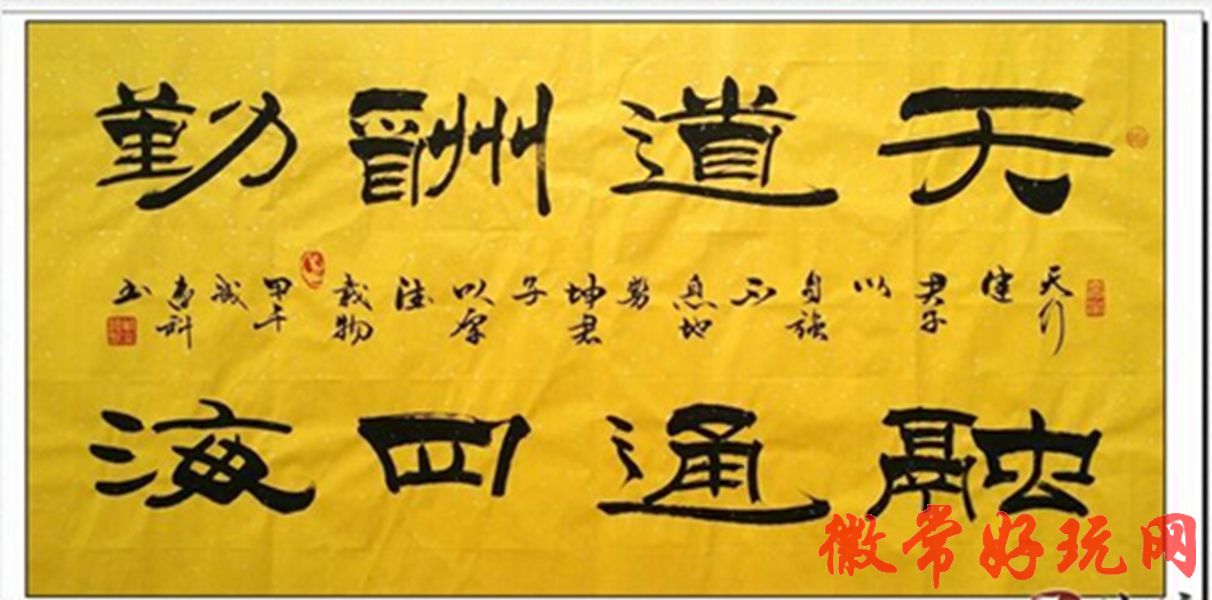 天道酬勤
天行健君子以自强不息地势坤君子以厚德载物
甲午
书
融通四海
徽常好玩网